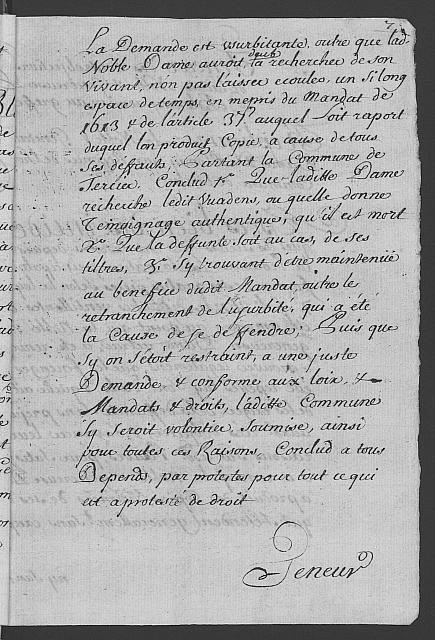 7.
La Demande est usurbitante, outre que lad.
Noble Dame auroit deub la rechercher de son
Vivant, non pas laisser ecouler un si long
espace de temps, en mepris du Mandat de
1613 & de larticle 37 auquel soit raport
duquel lon produit Copie, a cause de tous
ses deffauts; Partant la Commune de
Conclud 1° Que laditte Dame
recherche ledit ou quelle donne
Temoignage authentique, qu'il est mort
2° Que la deffunte soit au cas, de ses
tiltres, 3° Sy trouvant d'etre maintenue
au benefice dudit Mandat, outre le
retranchement de l'usurbite, qui a été
la Cause de se deffendre; Puis que
Sy on s'étoit restraint, a une juste
Demande & conforme aux loix, &
Mandats & droits, laditte Commune
sy seroit volontier soumise, ainsi
pour toutes ces Raisons, Conclud a tous
Depends, par protestes pour tout ce qui
est a protesté de droit